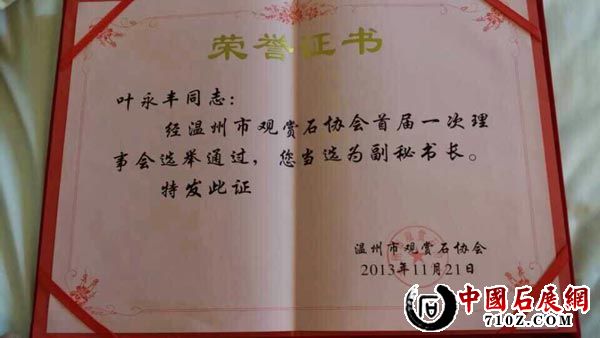 荣誉证书
叶永丰同志：
经温州市观赏石协会首届一次理
事会选举通过，您当选为副秘书长。
特发此证
温州市观赏石协会
2013年11月21日
中國石展網
7102.COM